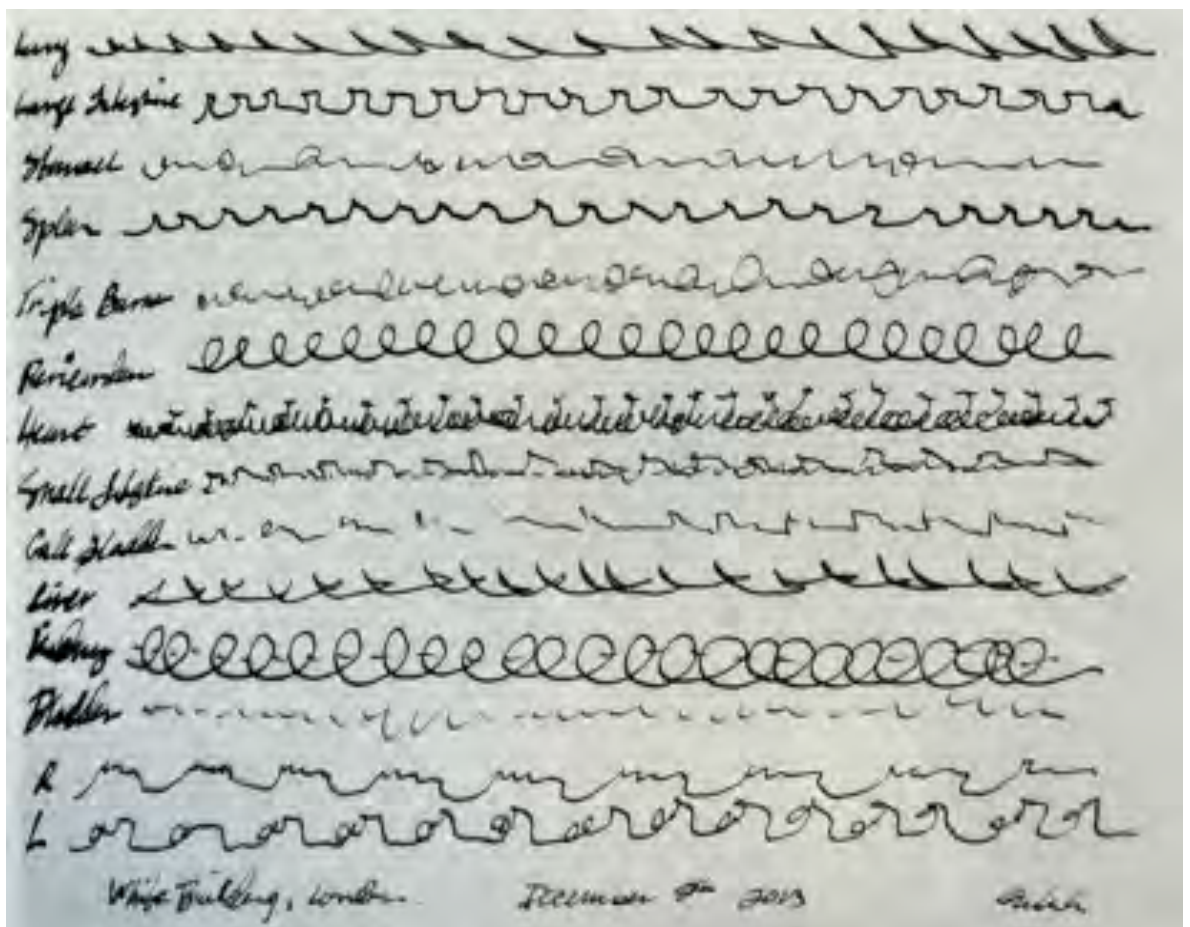 Lung
Large Intestine
Stomach
Spleen
Triple Burner
Pericardium
Heart
Small Intestine
Gall Bladder
Liver
Kidney
Bladder
R
L
White Building, London. December 9th 2013